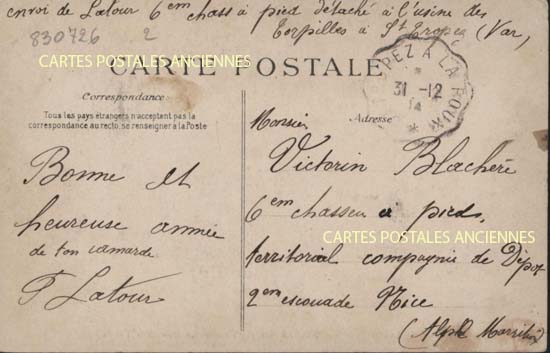 envoi de Latour 6em chass à pied détaché à l'usine des
Torpilles à St Tropez (Var)
830726 2
CARTES POSTALES ANCIENNES
CARTE POSTALE
Correspondance
Tous les pays étrangers n'acceptent pas la
correspondance au recto, se renseigner à la Poste
Bonne et
heureuse année
de ton camarde
F Latour
PEZ A LA ROUX
31 -12
14
Adresse
Monsieur
Victorin Blachère
6em chasseu à pied,
territorial compagnie de Depot
CARTES POSTALES ANCIENNES
2em escouade Nice
(Alpes Maritimes)